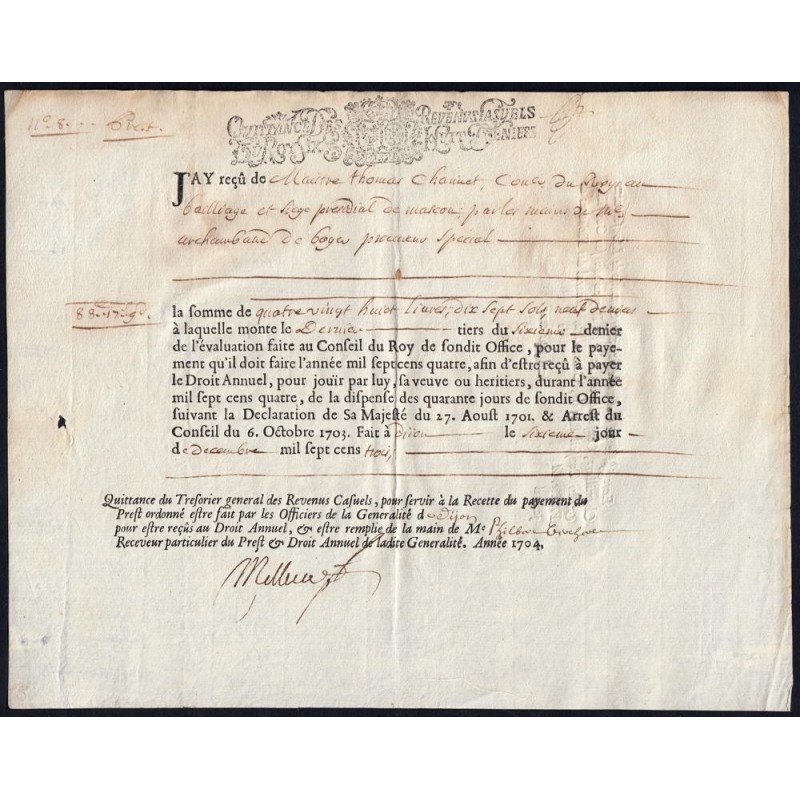 N° 8. Prest.
QUITTANCE DES REVENUS CASUELS
DU ROY SIX DENIERS
J'AY reçû de Maistre thomas Chanuet, Conser du Roy au
bailliage et siege presidial de mascon, par les mains de me
archambaud de procureur special
88lt 17s 9d. la somme de quatre vingt huict livres, dix sept sols neuf deniers
à laquelle monte le Dernier tiers du sixiesme denier
de l'évaluation faite au Conseil du Roy de sondit Office, pour le paye-
ment qu'il doit faire l'année mil sept cens quatre, afin d'estre reçû à payer
le Droit Annuel, pour joüir par luy, sa veuve ou heritiers, durant l'année
mil sept cens quatre, de la dispense des quarante jours de sondit Office,
suivant la Declaration de Sa Majesté du 27. Aoust 1701. & Arrest du
Conseil du 6. Octobre 1703. Fait à dijon le sixieme jour
de decembre mil sept cens trois,
Quittance du Tresorier general des Revenus Casuels, pour servir à la Recette du payement du
Prest ordonné estre fait par les Officiers de la Generalité de Dijon
pour estre reçûs au Droit Annuel, & estre remplie de la main de Me Philber
Receveur particulier du Prest & Droit Annuel de ladite Generalité. Année 1704.